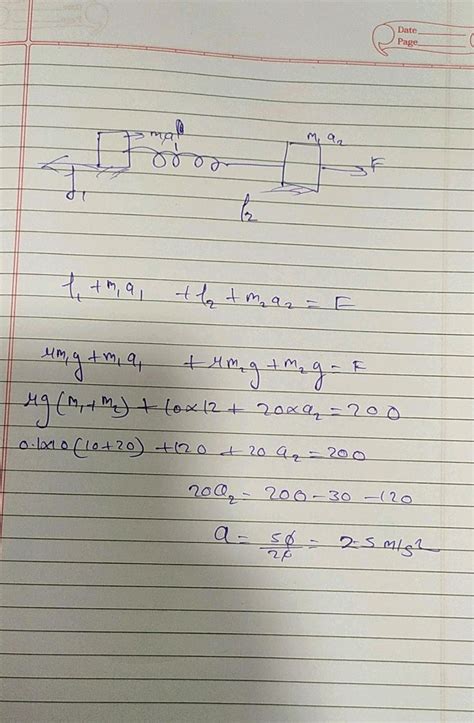 Date
Page
m₁a₁
m₁ a₂
F
f₁
f₂
f₁ + m₁a₁ + f₂ + m₂a₂ = F
μm₁g + m₁a₁ + μm₂g + m₂g = F
μg(m₁+m₂) + 10×12 + 20×a₂ = 200
0.1×10(10+20) + 120 + 20a₂ = 200
20a₂ = 200 - 30 - 120
a = 50/20 = 2.5 m/s²